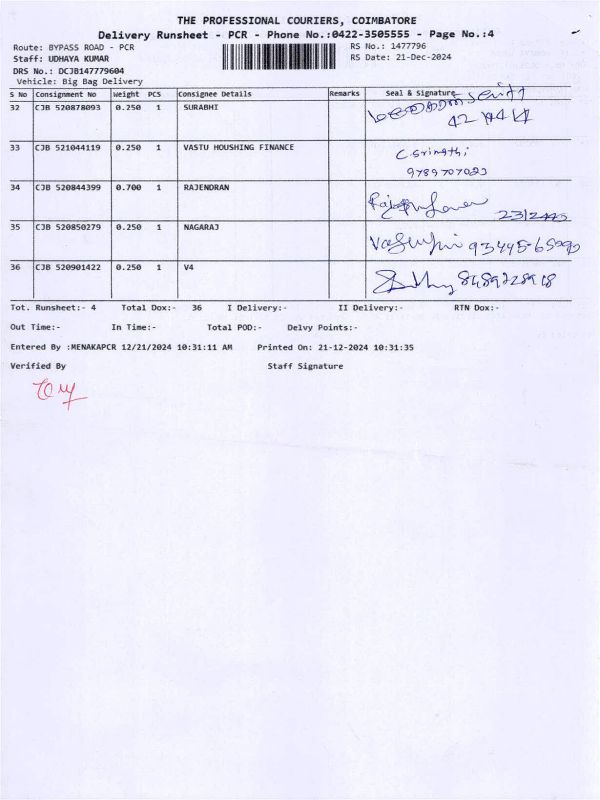 THE PROFESSIONAL COURIERS, COIMBATORE
Delivery Runsheet - PCR - Phone No.:0422-3505555 - Page No.:4
Route: BYPASS ROAD - PCR
RS No.: 1477796
Staff: UDHAYA KUMAR
RS Date: 21-Dec-2024
DRS No.: DCJB147779604
Vehicle: Big Bag Delivery
S No Consignment No Weight PCS Consignee Details Remarks Seal & Signature
32 CJB 520878093 0.250 1 SURABHI
33 CJB 521044119 0.250 1 VASTU HOUSHING FINANCE C. Srinathi
9789707023
34 CJB 520844399 0.700 1 RAJENDRAN
35 CJB 520850279 0.250 1 NAGARAJ
36 CJB 520901422 0.250 1 V4
Tot. Runsheet:- 4 Total Dox:- 36 I Delivery:- II Delivery:- RTN Dox:-
Out Time:- In Time:- Total POD:- Delvy Points:-
Entered By :MENAKAPCR 12/21/2024 10:31:11 AM Printed On: 21-12-2024 10:31:35
Verified By Staff Signature